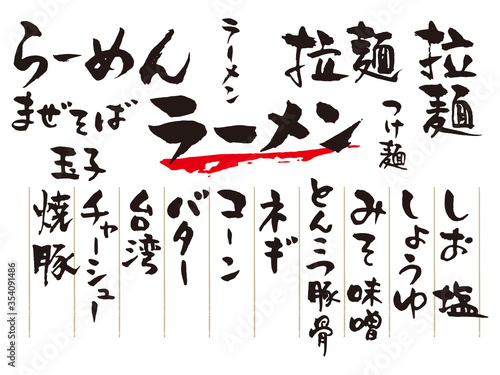 らーめん
ラーメン
拉麺
拉麺
まぜそば
ラーメン
つけ麺
玉子
しお 塩
しょうゆ
みそ 味噌
とんこつ豚骨
ネギ
コーン
バター
台湾
チャーシュー
焼豚
Adobe Stock | #354091486